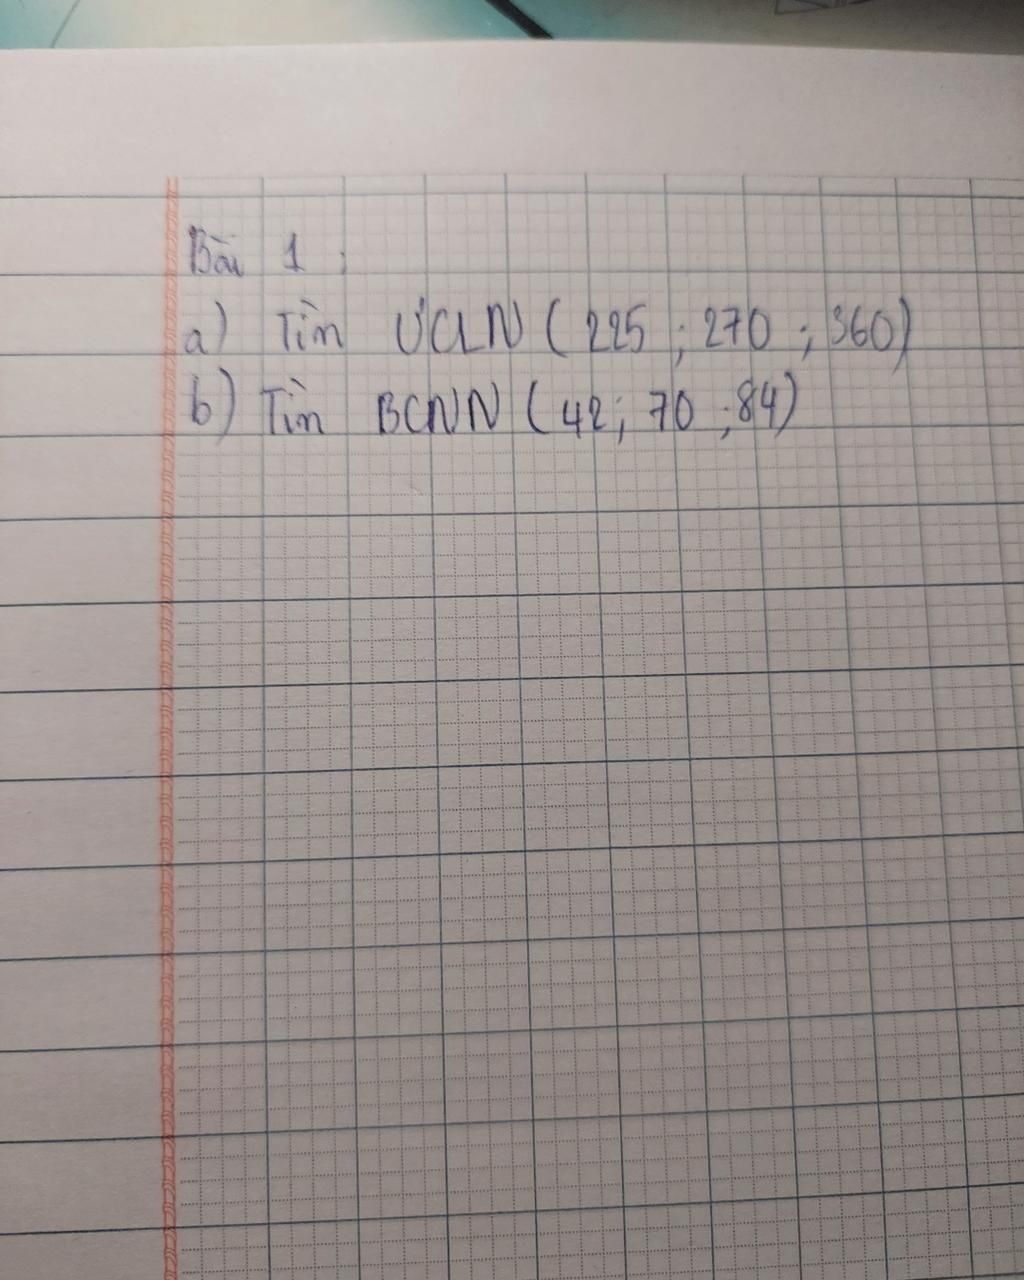 Bài 1 :
a) Tìm ƯCLN ( 225 ; 270 ; 360)
b) Tìm BCNN ( 42 ; 70 ; 84)